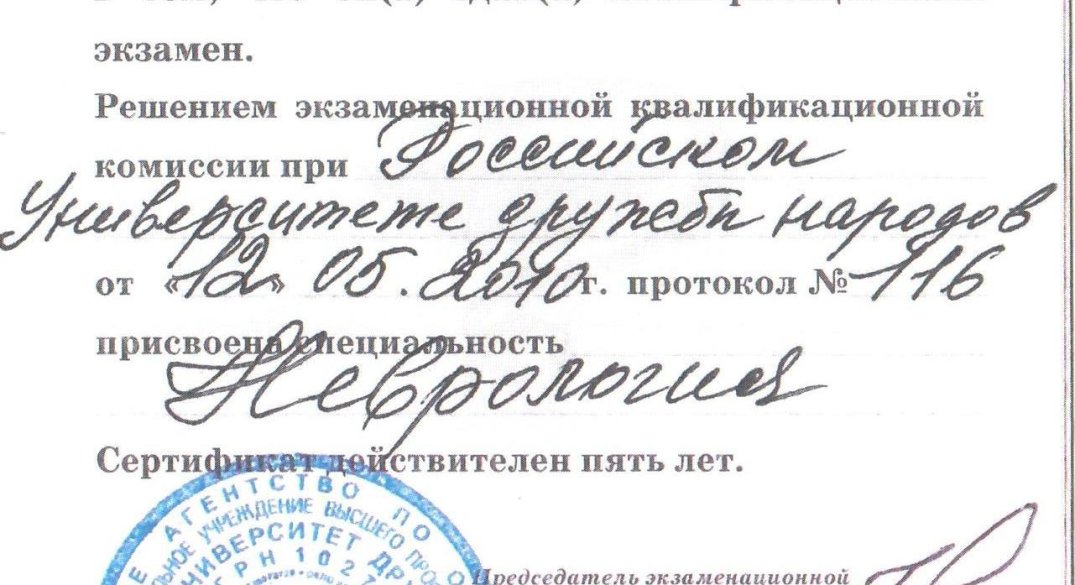 экзамен.
Решением экзаменационной квалификационной
комиссии при Российском
Университете дружбы народов
от «12» 05. 2010г. протокол № 116
присвоена специальность
Неврология
Сертификат действителен пять лет.
АГЕНТСТВО ПО
УЧРЕЖДЕНИЕ ВЫСШЕГО
УНИВЕРСИТЕТ
Председатель экзаменационной